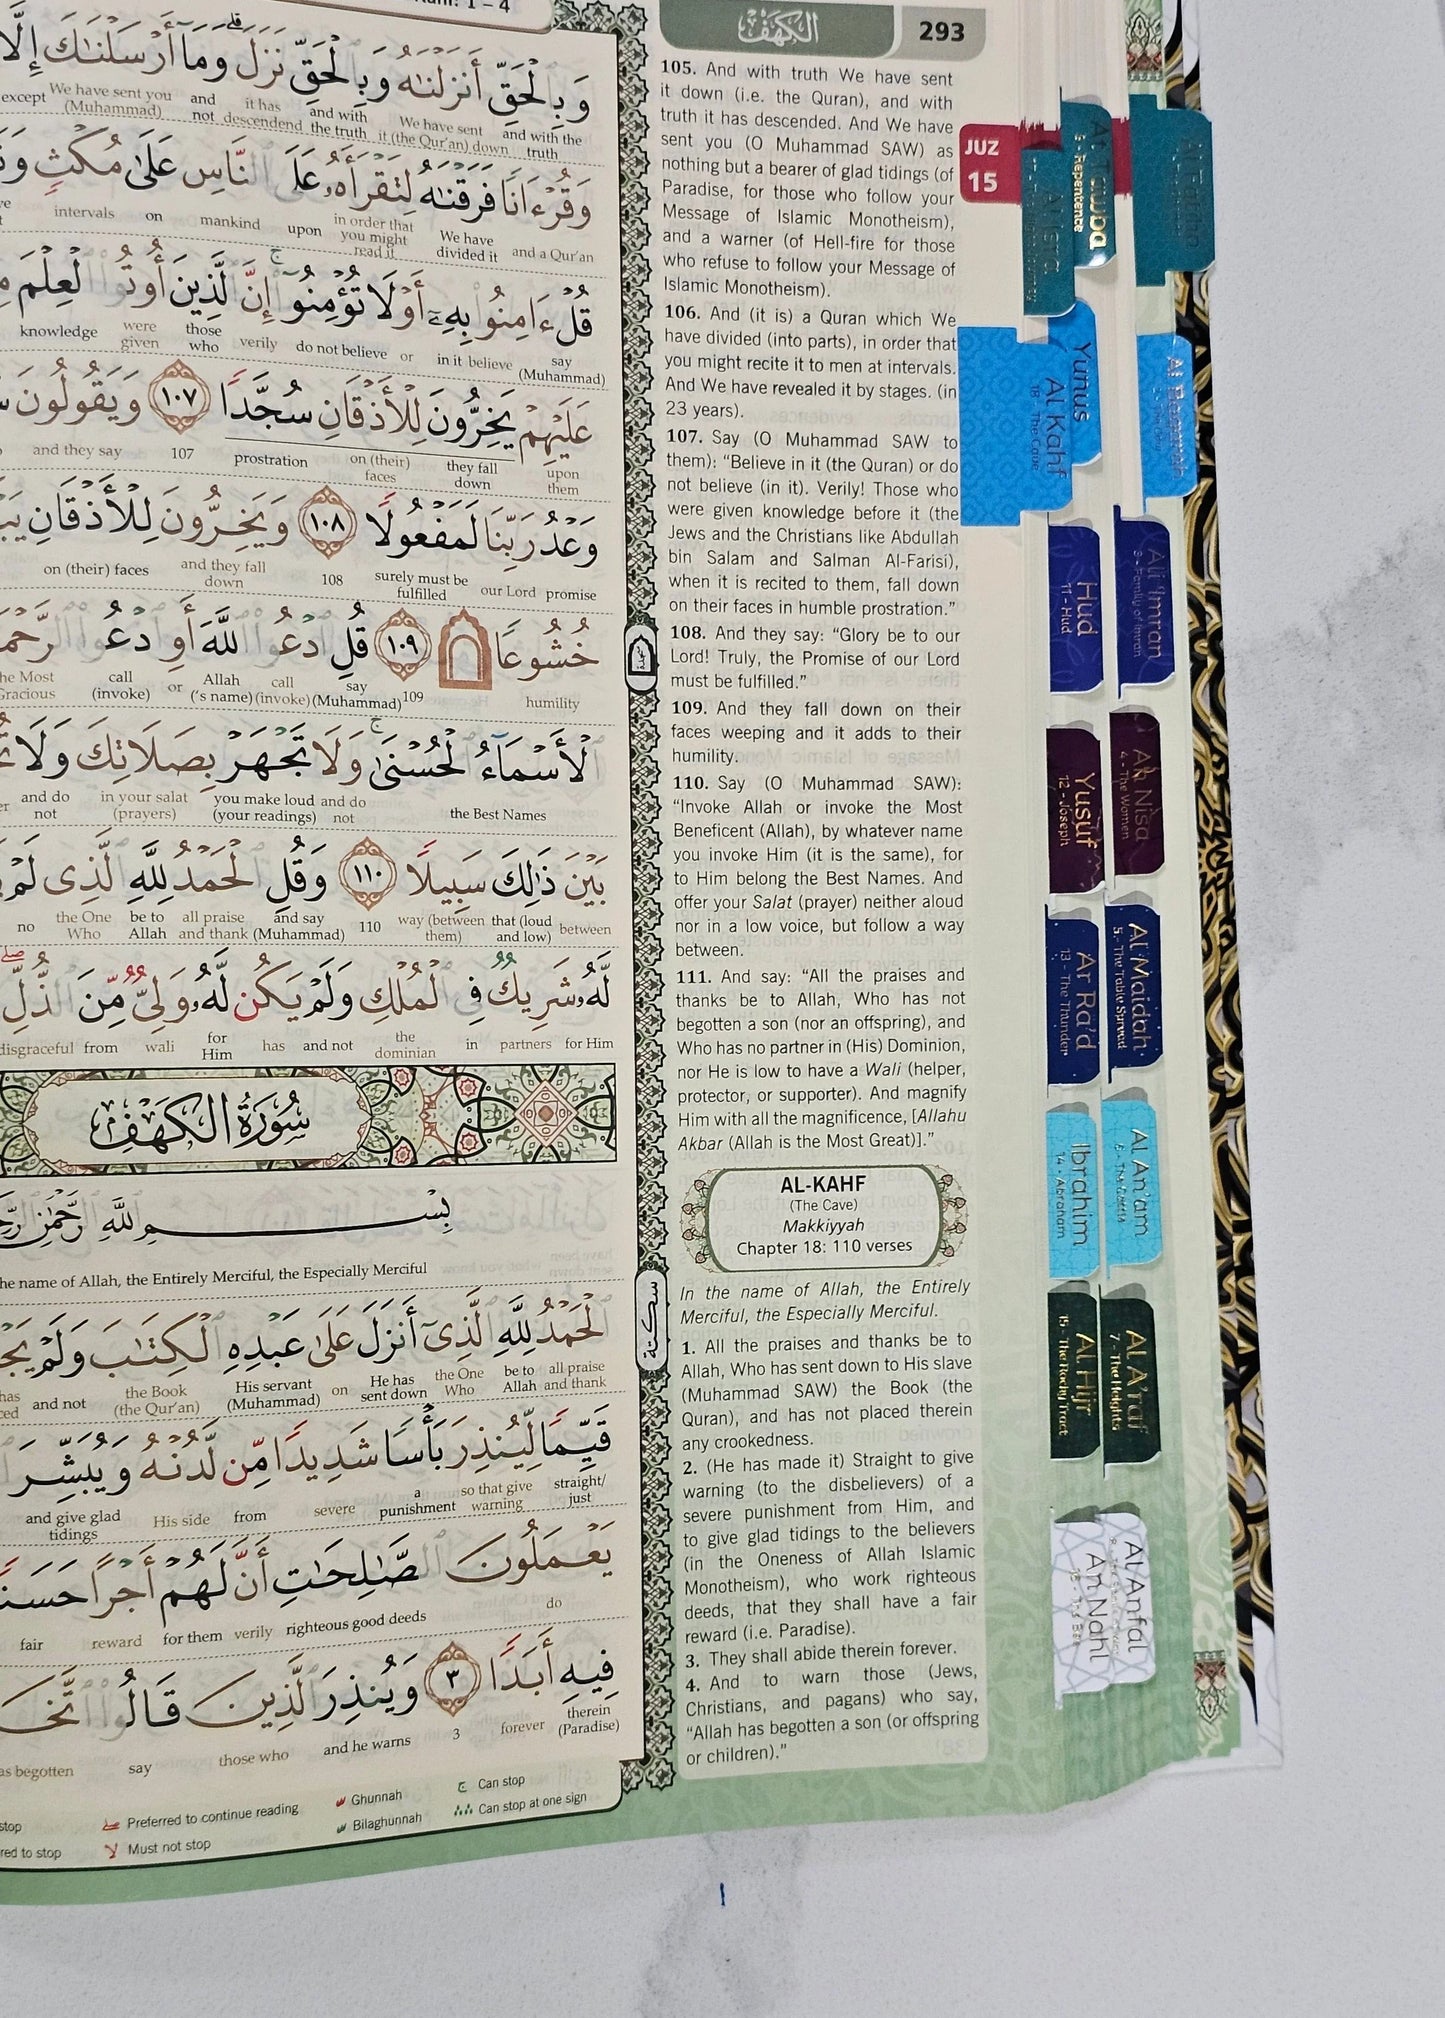 الكهف
293
105. And with truth We have sent
it down (i.e. the Quran), and with
truth it has descended. And We have
sent you (O Muhammad SAW) as
nothing but a bearer of glad tidings (of
Paradise, for those who follow your
Message of Islamic Monotheism),
and a warner (of Hell-fire for those
who refuse to follow your Message of
Islamic Monotheism).
106. And (it is) a Quran which We
have divided (into parts), in order that
you might recite it to men at intervals.
And We have revealed it by stages. (in
23 years).
107. Say (O Muhammad SAW to
them): “Believe in it (the Quran) or do
not believe (in it). Verily! Those who
were given knowledge before it (the
Jews and the Christians like Abdullah
bin Salam and Salman Al-Farisi),
when it is recited to them, fall down
on their faces in humble prostration.”
108. And they say: “Glory be to our
Lord! Truly, the Promise of our Lord
must be fulfilled.”
109. And they fall down on their
faces weeping and it adds to their
humility.
110. Say (O Muhammad SAW):
“Invoke Allah or invoke the Most
Beneficent (Allah), by whatever name
you invoke Him (it is the same), for
to Him belong the Best Names. And
offer your Salat (prayer) neither aloud
nor in a low voice, but follow a way
between.
111. And say: “All the praises and
thanks be to Allah, Who has not
begotten a son (nor an offspring), and
Who has no partner in (His) Dominion,
nor He is low to have a Wali (helper,
protector, or supporter). And magnify
Him with all the magnificence, [Allahu
Akbar (Allah is the Most Great)].”
AL-KAHF
(The Cave)
Makkiyyah
Chapter 18: 110 verses
In the name of Allah, the Entirely
Merciful, the Especially Merciful.
1. All the praises and thanks be to
Allah, Who has sent down to His slave
(Muhammad SAW) the Book (the
Quran), and has not placed therein
any crookedness.
2. (He has made it) Straight to give
warning (to the disbelievers) of a
severe punishment from Him, and
to give glad tidings to the believers
(in the Oneness of Allah Islamic
Monotheism), who work righteous
deeds, that they shall have a fair
reward (i.e. Paradise).
3. They shall abide therein forever.
4. And to warn those (Jews,
Christians, and pagans) who say,
“Allah has begotten a son (or offspring
or children).”
وَبِٱلْحَقِّ أَنزَلْنَٰهُ وَبِٱلْحَقِّ نَزَلَ وَمَآ أَرْسَلْنَٰكَ إِلَّا
except We have sent you and it has and with We have sent and with the
(Muhammad) not descendend the truth it (the Qur'an) down truth
وَقُرْءَانًا فَرَقْنَٰهُ لِتَقْرَأَهُۥ عَلَى ٱلنَّاسِ عَلَىٰ مُكْثٍ
intervals on mankind upon in order that you might read it We have divided it and a Qur'an
قُلْ ءَامِنُوا۟ بِهِۦٓ أَوْ لَا تُؤْمِنُوٓا۟ إِنَّ ٱلَّذِينَ أُوتُوا۟ ٱلْعِلْمَ
knowledge were given those who verily do not believe or in it believe say (Muhammad)
عَلَيْهِمْ يَخِرُّونَ لِلْأَذْقَانِ سُجَّدًا ١٠٧ وَيَقُولُونَ
and they say 107 prostration on (their) faces they fall down upon them
وَعْدُ رَبِّنَا لَمَفْعُولًا ١٠٨ وَيَخِرُّونَ لِلْأَذْقَانِ
on (their) faces and they fall down 108 surely must be fulfilled our Lord promise
خُشُوعًا ١٠٩ قُلِ ٱدْعُوا۟ ٱللَّهَ أَوِ ٱدْعُوا۟
call (invoke) or Allah ('s name) call (invoke) say (Muhammad) 109 humility
ٱلْأَسْمَآءُ ٱلْحُسْنَىٰ وَلَا تَجْهَرْ بِصَلَاتِكَ وَلَا
and do not in your salat (prayers) you make loud (your readings) and do not the Best Names
بَيْنَ ذَٰلِكَ سَبِيلًا ١١٠ وَقُلِ ٱلْحَمْدُ لِلَّهِ ٱلَّذِى لَمْ
no the One Who be to Allah all praise and thank and say (Muhammad) 110 way (between them) that (loud and low) between
لَّهُۥ شَرِيكٌ فِى ٱلْمُلْكِ وَلَمْ يَكُن لَّهُۥ وَلِىٌّ مِّنَ ٱلذُّلِّ
disgraceful from wali for Him has and not the dominian in partners for Him
سُورَةُ الكَهْفِ
بِسْمِ ٱللَّهِ
he name of Allah, the Entirely Merciful, the Especially Merciful
ٱلْحَمْدُ لِلَّهِ ٱلَّذِىٓ أَنزَلَ عَلَىٰ عَبْدِهِ ٱلْكِتَٰبَ وَلَمْ
and not the Book (the Qur'an) His servant (Muhammad) on He has sent down the One Who be to Allah all praise and thank
قَيِّمًا لِّيُنذِرَ بَأْسًا شَدِيدًا مِّن لَّدُنْهُ وَيُبَشِّرَ
and give glad tidings His side from severe a punishment so that give warning straight/ just
يَعْمَلُونَ ٱلصَّٰلِحَٰتِ أَنَّ لَهُمْ أَجْرًا حَسَنًا
fair reward for them verily righteous good deeds do
فِيهِ أَبَدًا ٣ وَيُنذِرَ ٱلَّذِينَ قَالُوا۟
as begotten say those who and he warns 3 forever therein (Paradise)
Preferred to continue reading
Must not stop
Ghunnah
Bilaghunnah
Can stop
Can stop at one sign
سكتة
JUZ
15
At Tawba
9 - Repentence
Al Isra
Yunus
Al Kahf
18 - The Cave
Al Baqarah
Hud
11 - Hud
Ali 'Imran
3 - Family of Imran
Yusuf
12 - Joseph
An Nisa
4 - The Women
Ar Ra'd
13 - The Thunder
Al Maidah
5 - The Table Spread
Ibrahim
14 - Abraham
Al An'am
Al Hijr
15 - The Rocky Tract
Al A'raf
7 - The Heights
Al Anfal
An Nahl